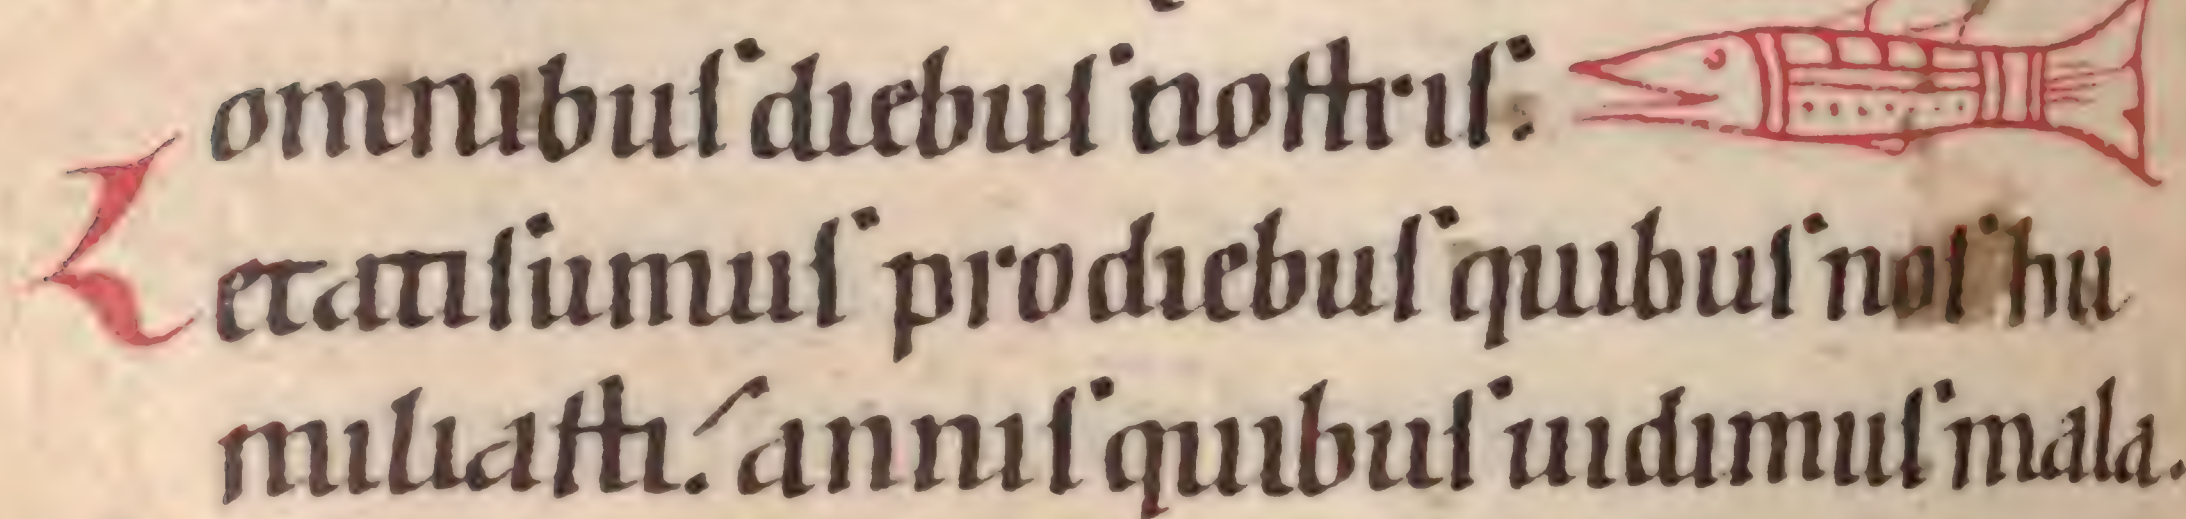 omnibuſ diebuſ noſtriſ:
Letati ſumuſ pro diebuſ quibuſ noſ hu
miliaſti. anniſ quibuſ uidimuſ mala.